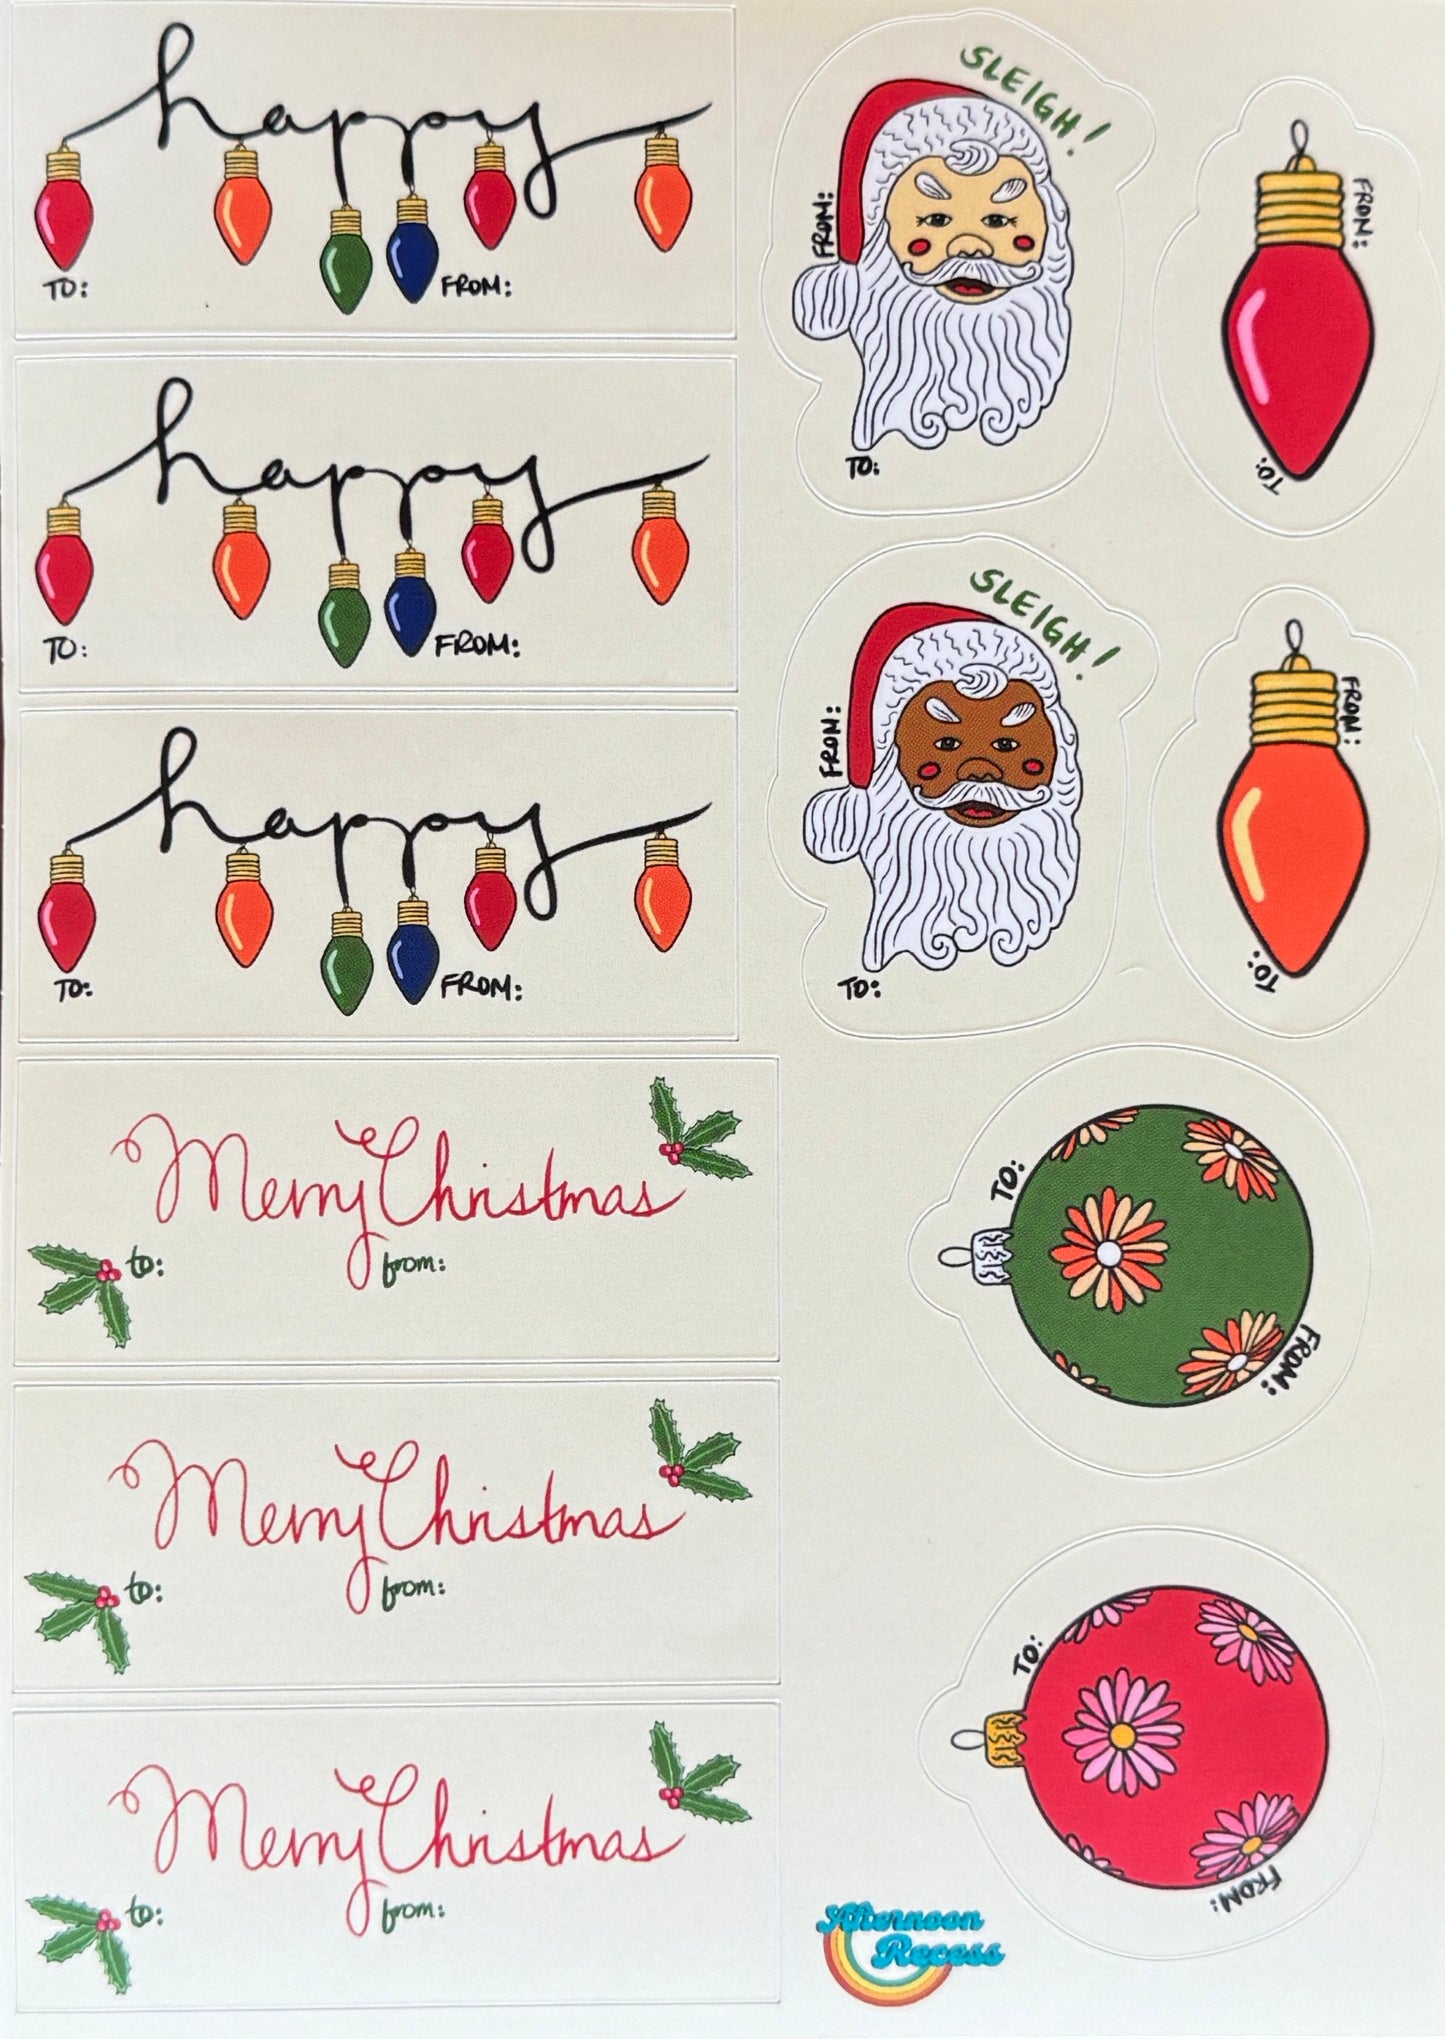 happy
TO: FROM:
happy
TO: FROM:
happy
TO: FROM:
Merry Christmas
to: from:
Merry Christmas
to: from:
Merry Christmas
to: from:
SLEIGH!
FROM:
TO:
FROM:
TO:
SLEIGH!
FROM:
TO:
FROM:
TO:
TO:
FROM:
TO:
FROM:
Afternoon
Recess